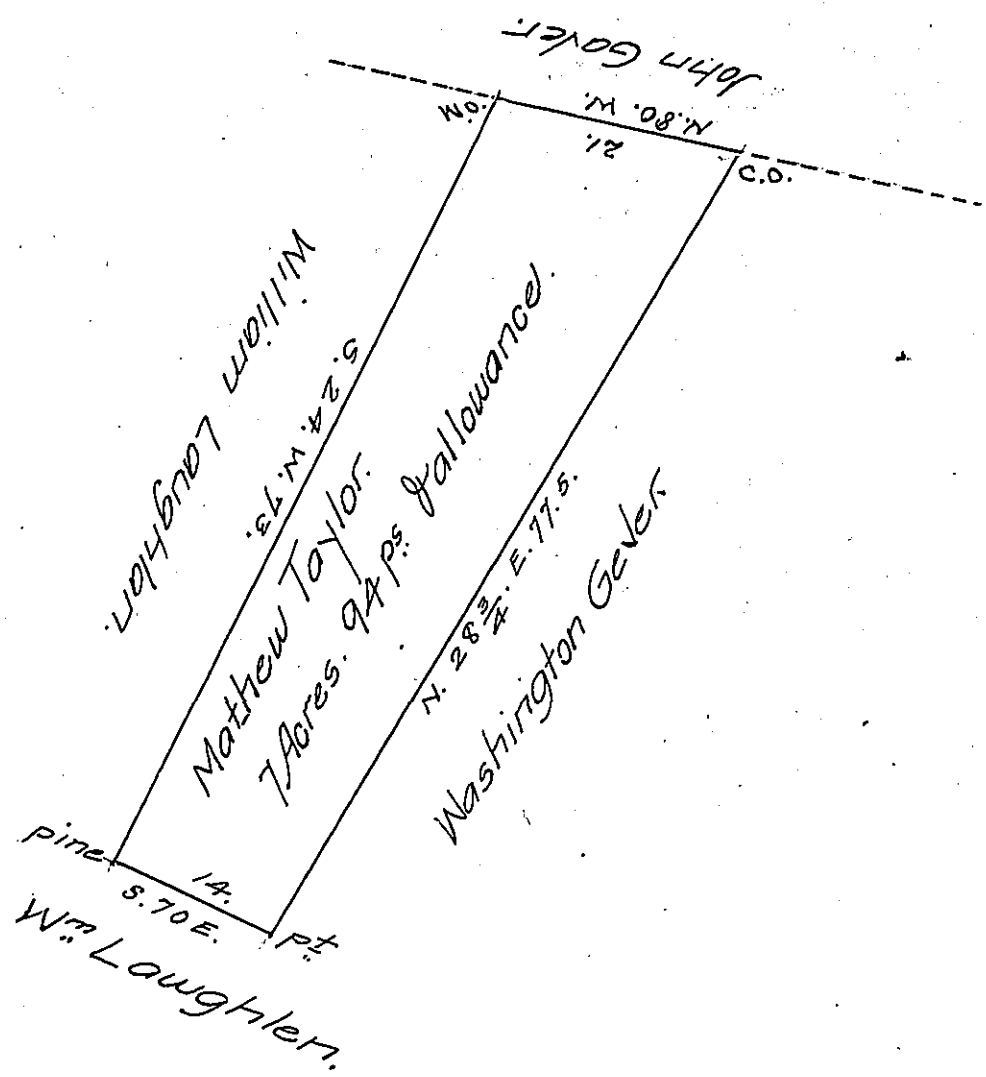 John Gaver.
N. 80. W.
21.
W.O.
C.O.
William Laughlan.
S. 24. W. 73.
Mathew Taylor.
7 Acres. 94 ps. & allowance.
N. 28 3/4. E. 77.5.
Washington Gever.
pine
14.
S. 70 E.
pt
Wm Lawghlen.